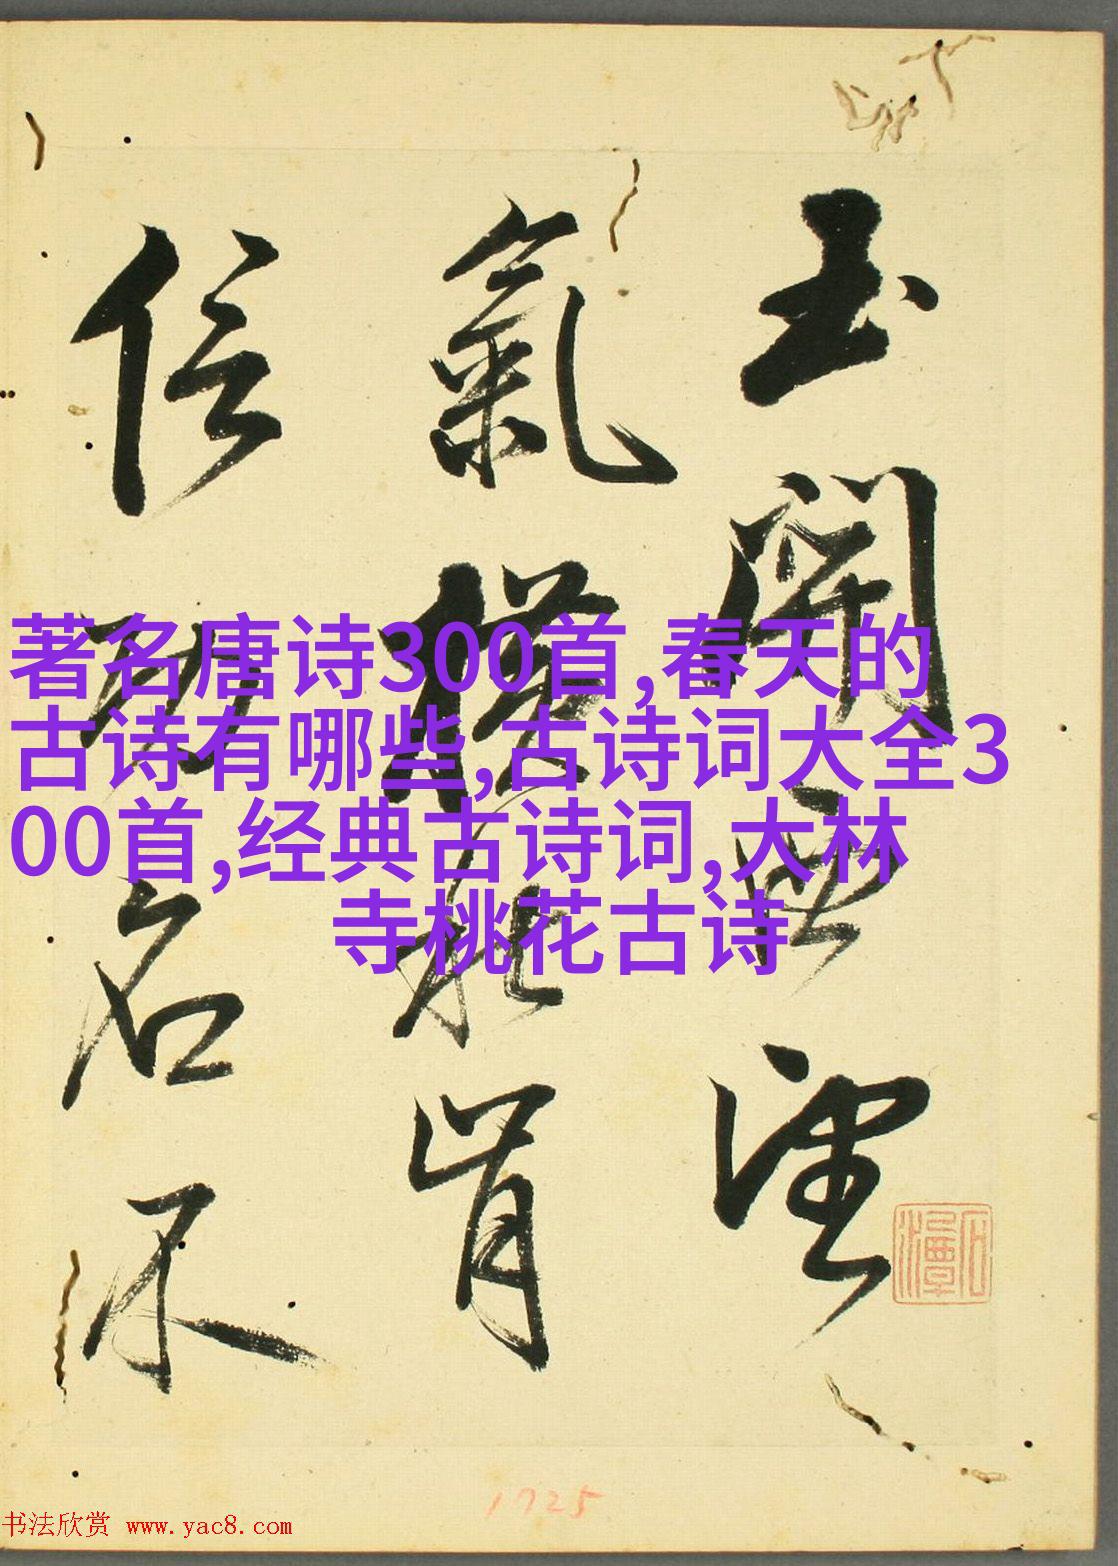 玉關西望
氣橫秋肯
信功名不
著名唐诗300首,春天的
古诗有哪些,古诗词大全3
00首,经典古诗词,大林
寺桃花古诗
1725
书法欣赏 www.yac8.com